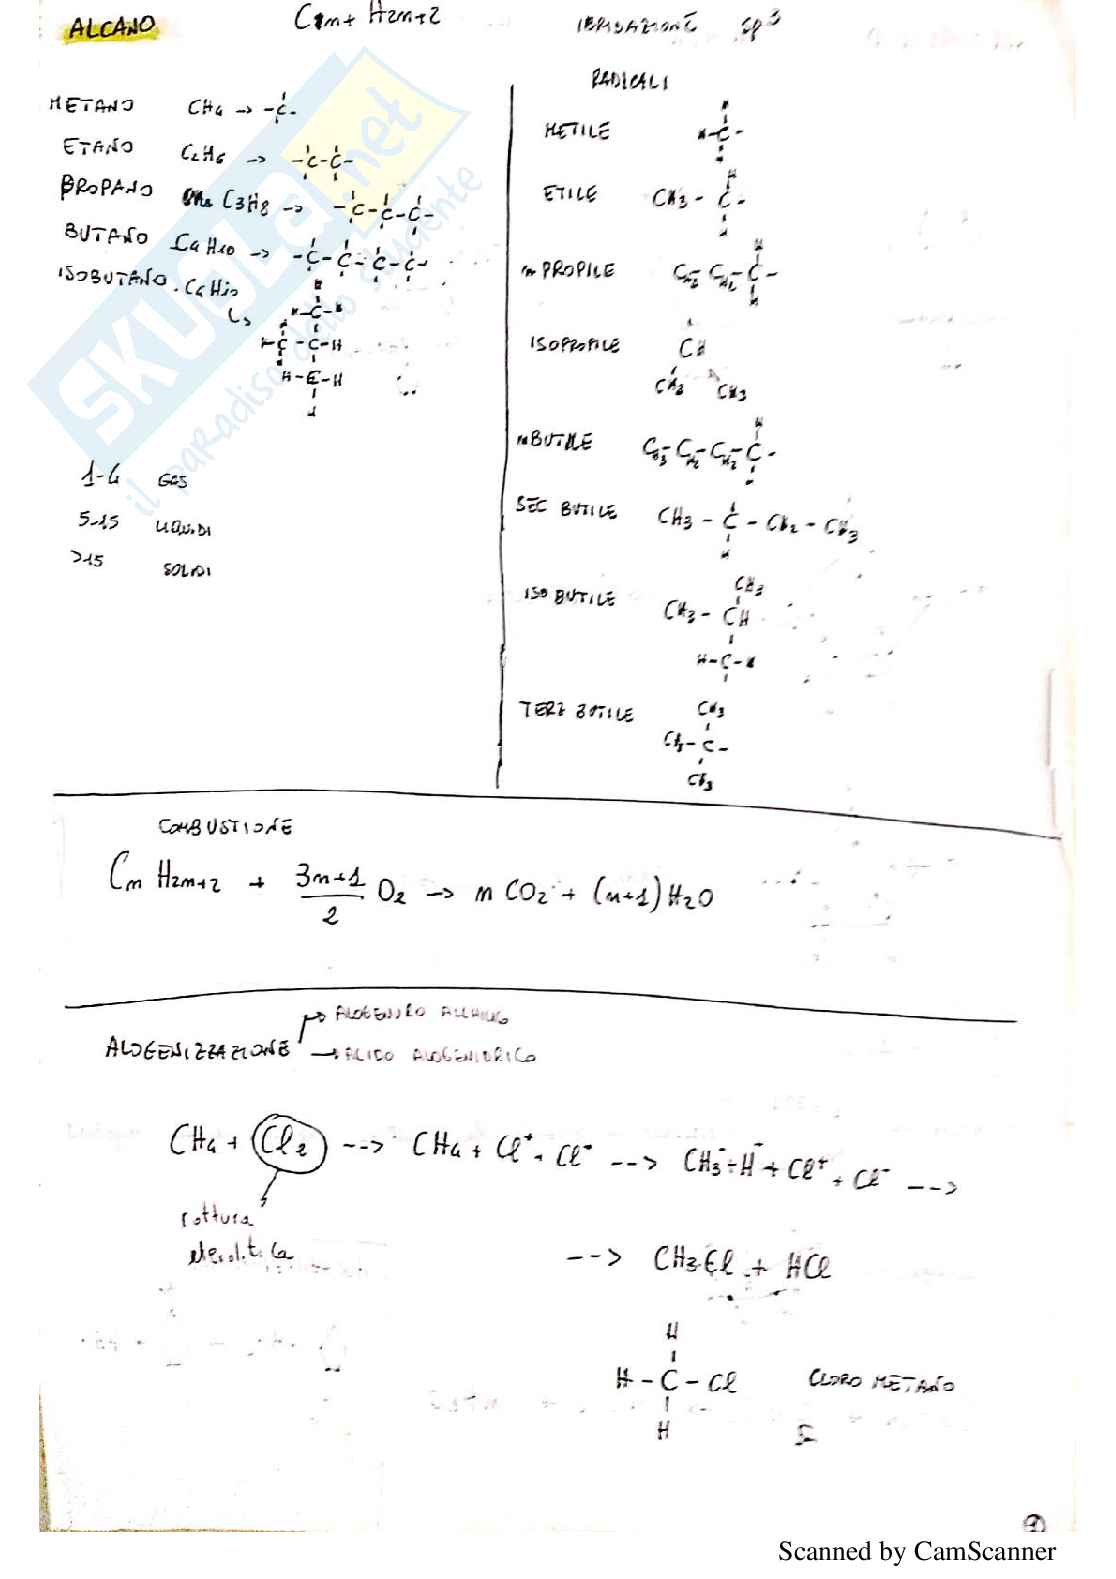 ALCANO
Cn+ H2n+2
IBRIDAZIONE sp3
METANO CH4 -> -C-
ETANO C2H6 -> -C-C-
PROPANO C3H8 -> -C-C-C-
BUTANO C4H10 -> -C-C-C-C-
ISOBUTANO C4H10
H-C-H
H-C-C-H
H-C-H
1-4 GAS
5-15 LIQUIDI
>15 SOLIDI
RADICALI
METILE H-C-
ETILE CH3-C-
n PROPILE CH3-CH2-C-
ISOPROPILE CH
CH3 CH3
n BUTILE CH3-CH2-CH2-C-
SEC BUTILE CH3-C-CH2-CH3
H
ISO BUTILE CH3
CH3-CH
H-C-H
TERZ BUTILE CH3
CH3-C-
CH3
COMBUSTIONE
CnH2n+2 + 3n+1/2 O2 -> nCO2 + (n+1)H2O
ALOGENIZZAZIONE
-> ALOGENURO ALCHILICO
-> ACIDO ALOGENIDRICO
CH4 + Cl2 --> CH4 + Cl+ + Cl- --> CH3-H + Cl+ + Cl- -->
rottura
eterolitica
--> CH3Cl + HCl
H
H-C-Cl CLORO METANO
H
1
Scanned by CamScanner
SKUOLA.net
il paradiso dello studente